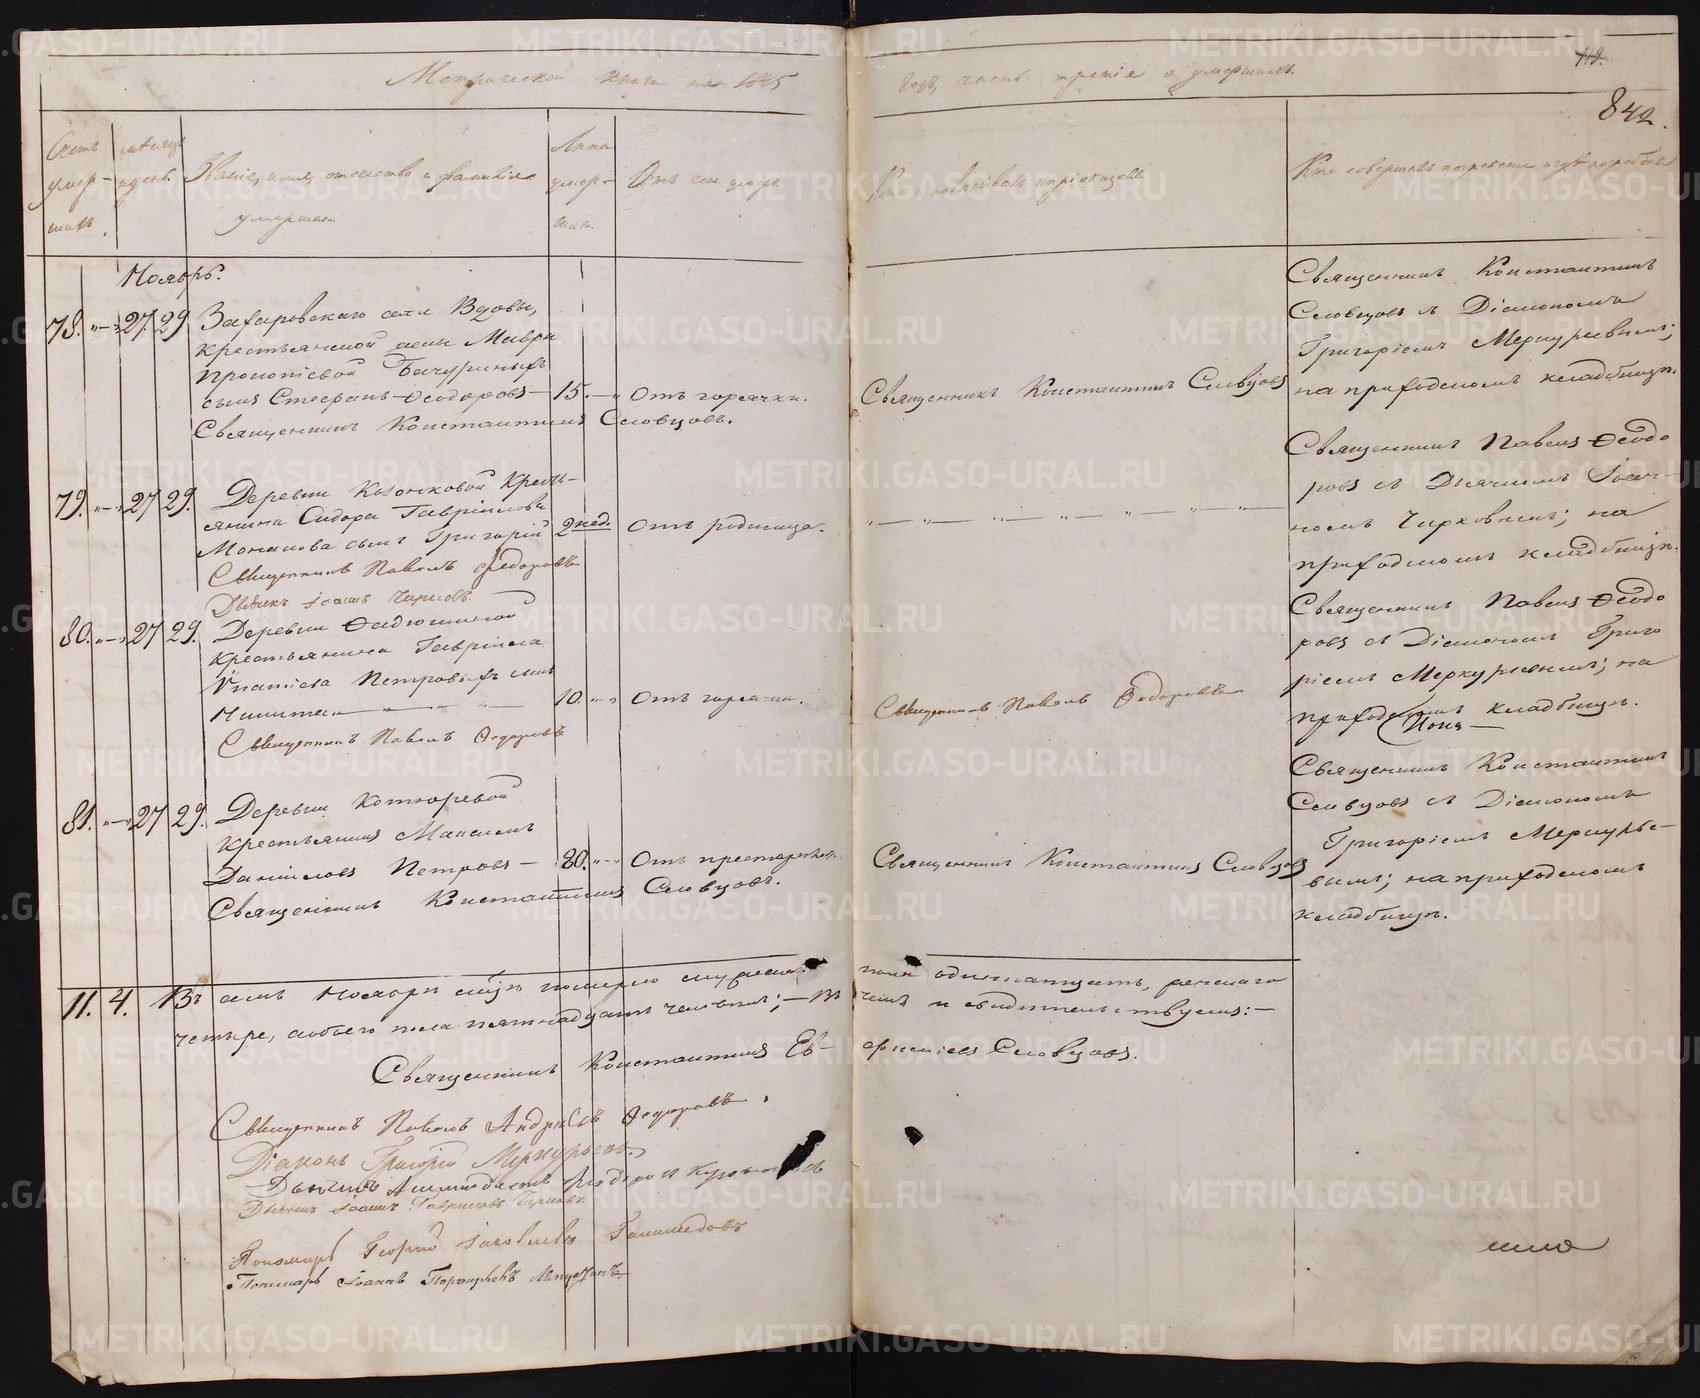 Метрической книги на 1845
годъ, часть третія о умершихъ.
119.
842.
Счетъ умер-шихъ.
Мѣсяцъ и день.
Званіе, имя, отчество и фамилія умершаго.
Лѣта умер-шихъ.
Отъ чего умеръ.
Кто исповѣдывалъ и пріобщалъ.
Кто совершалъ погребеніе и гдѣ погребены
Ноябрь.
78. 27 29 Захаровскаго села Вдовы,
крестьянской жены Мавры
Прокопіевой Бачуриныхъ
сынъ Стефанъ Ѳеодоровъ — 15. Отъ горячки.
Священникъ Константинъ Словцовъ.
Священникъ Константинъ Словцовъ
Священникъ Константинъ
Словцовъ съ Діакономъ
Григоріемъ Меркурьевымъ;
на приходскомъ кладбищѣ.
79. 27 29. Деревни Казаковой Кресть-
янина Сидора Гавріилова
сынъ Григорій 2 нед. Отъ родимца.
Священникъ Павелъ Федоровъ
Дьячекъ Іоаннъ Чирковъ.
Священникъ Павелъ Ѳеодо
ровъ съ Дьячкомъ Іоан-
номъ Чирковымъ; на
приходскомъ кладбищѣ.
80. 27 29. Деревни
крестьянина Гавріила
Игнатіева Петровыхъ сынъ
Никита 10. Отъ горячки.
Священникъ Павелъ Ѳедоровъ
Священникъ Павелъ Ѳедоровъ
Священникъ Павелъ Ѳеодо
ровъ съ Діакономъ Григо
ріемъ Меркурьевымъ; на
приходскомъ кладбищѣ.
81. 27 29. Деревни
Крестьянинъ Максимъ
Даниловъ Петровъ — 80. Отъ престарѣлости.
Священникъ Константинъ Словцовъ.
Священникъ Константинъ Словцовъ
Священникъ Константинъ
Словцовъ съ Діакономъ
Григоріемъ Меркурье-
вымъ; на приходскомъ
кладбищѣ.
11. 4. Въ семъ Ноябрѣ мѣсяцѣ померло мужескаго пола одинадцать, женскаго
четыре, обоего пола пятнадцать человѣкъ; — въ чемъ и свидѣтельствуемъ: —
Священникъ Константинъ Словцовъ.
Священникъ Павелъ Андреевъ Ѳедоровъ.
Діаконъ Григорій Меркурьевъ.
Дьячекъ
Дьячекъ Іоаннъ Гавриловъ Чирковъ.
Пономарь Георгій Іаковлевъ
Пономарь Іоаннъ Порфирьевъ